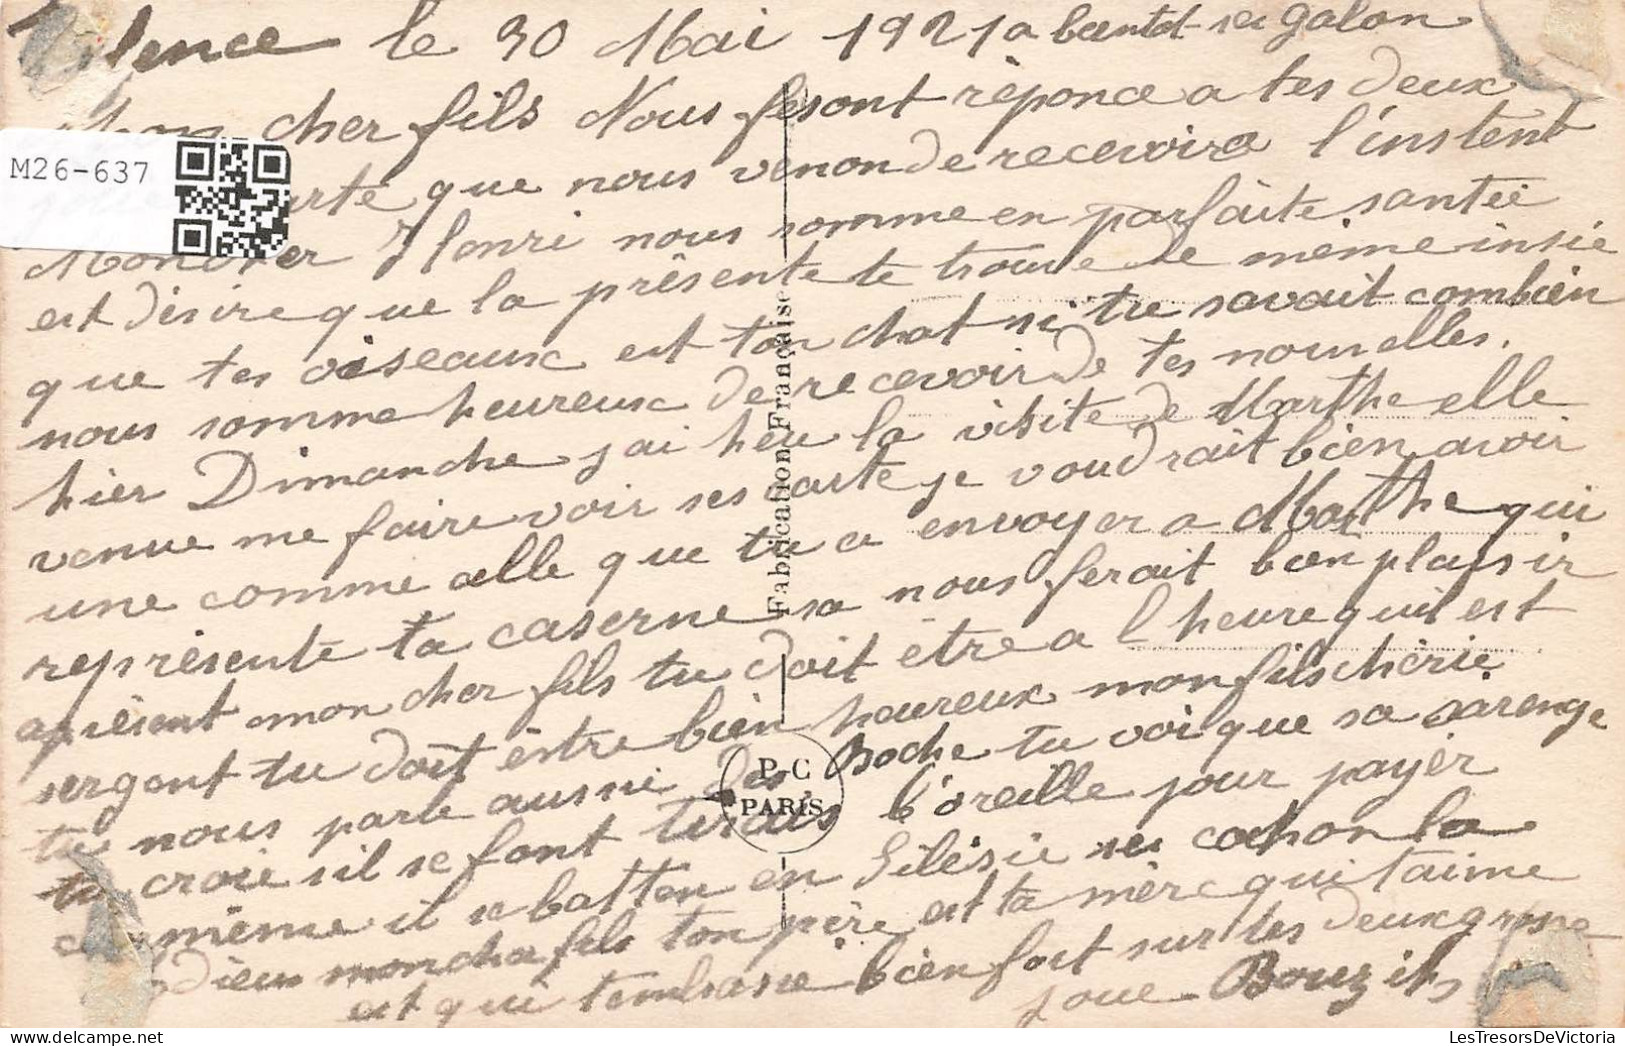 Valence le 30 Mai 1921 a bientot ses galon
Mon cher fils Nous fesont réponce a tes deux
carte que nous venon de recevoire l'instent
Moncher Henri nous somme en parfaite santée
est désire que la présente te trouve de même insie
que tes oiseaux est ton chat si tu savait combien
nous somme heureux de recevoir de tes nouvelles.
hier Dimanche jai heu la visite de Marthe elle
venue me faire voir ses carte je voudrait bien avoir
une comme celle que tu a envoyer a Marthe qui
représente ta caserne sa nous ferait bien plaisir
aprésent mon cher fils tu doit être a l'heure quil est
sergent tu doit être bien heureux mon fils chérie
tu nous parle aussie des Boche tu voi que sa sarenge
tu croie sil se font tirais l'oreille pour payér
même il se batton en Silésie ses cochon la
adieu moncher fils ton père est ta mère qui t'aime
est qui t'embrasse bien fort sur tes deux grosse
joue Bouzits
M26-637
Fabrication Française
P-C
PARIS
LesTresorsDeVictoria